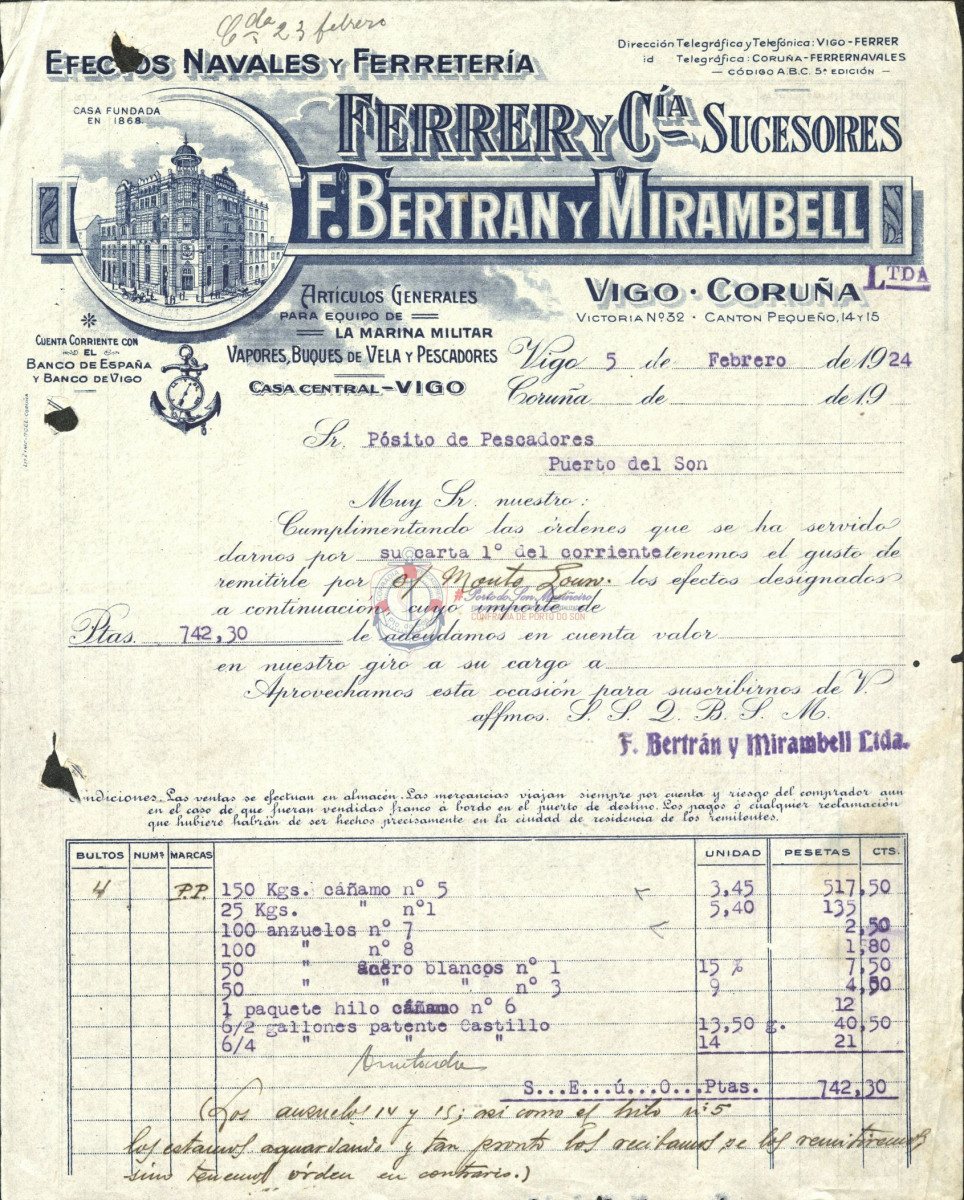 Cda 23 febrero
EFECTOS NAVALES Y FERRETERÍA
Dirección Telegráfica y Telefónica: VIGO-FERRER
id Telegráfica: CORUÑA-FERRERNAVALES
— CÓDIGO A.B.C. 5ª EDICIÓN —
CASA FUNDADA
EN 1868.
FERRER Y CÍA SUCESORES
F. BERTRAN Y MIRAMBELL
LTDA
VIGO · CORUÑA
VICTORIA Nº 32 · CANTON PEQUEÑO, 14 Y 15
ARTÍCULOS GENERALES
PARA EQUIPO DE
LA MARINA MILITAR
VAPORES, BUQUES DE VELA Y PESCADORES
CASA CENTRAL-VIGO
CUENTA CORRIENTE CON
EL
BANCO DE ESPAÑA
Y BANCO DE VIGO
Vigo 5 de Febrero de 1924
Coruña de de 19
Sr. Pósito de Pescadores
Puerto del Son
Muy Sr. nuestro:
Cumplimentando las órdenes que se ha servido
darnos por su carta 1º del corriente tenemos el gusto de
remitirle por los efectos designados
a continuación cuyo importe de
Porto do Son Mariñeiro
CONFRARÍA DE PORTO DO SON
Ptas. 742,30 le adeudamos en cuenta valor
en nuestro giro a su cargo a
Aprovechamos esta ocasión para suscribirnos de V.
affmos. S. S. Q. B. S. M.
F. Bertrán y Mirambell Ltda.
Condiciones. Las ventas se efectuan en almacén. Las mercancias viajan siempre por cuenta y riesgo del comprador aun
en el caso de que fueran vendidas franco á bordo en el puerto de destino. Los pagos ó cualquier reclamación
que hubiere habrán de ser hechos precisamente en la ciudad de residencia de los remitentes.
BULTOS NUMS MARCAS UNIDAD PESETAS CTS.
4 P.P. 150 Kgs. cáñamo nº 5 3,45 517,50
25 Kgs. " nº1 5,40 135
100 anzuelos nº 7 2,50
100 " nº 8 1,80
50 " acero blancos nº 1 15 % 7,50
50 " " " nº 3 9 4,50
1 paquete hilo cáñamo nº 6 12
6/2 gallones patente Castillo 13,50 g. 40,50
6/4 " " " 14 21
S...E...ú...O...Ptas. 742,30
(Los anzuelos 14 y 15; asi como el hilo nº 5
los estamos aguardando y tan pronto los recibamos se los remitiremos
sino tenemos órden en contrario.)